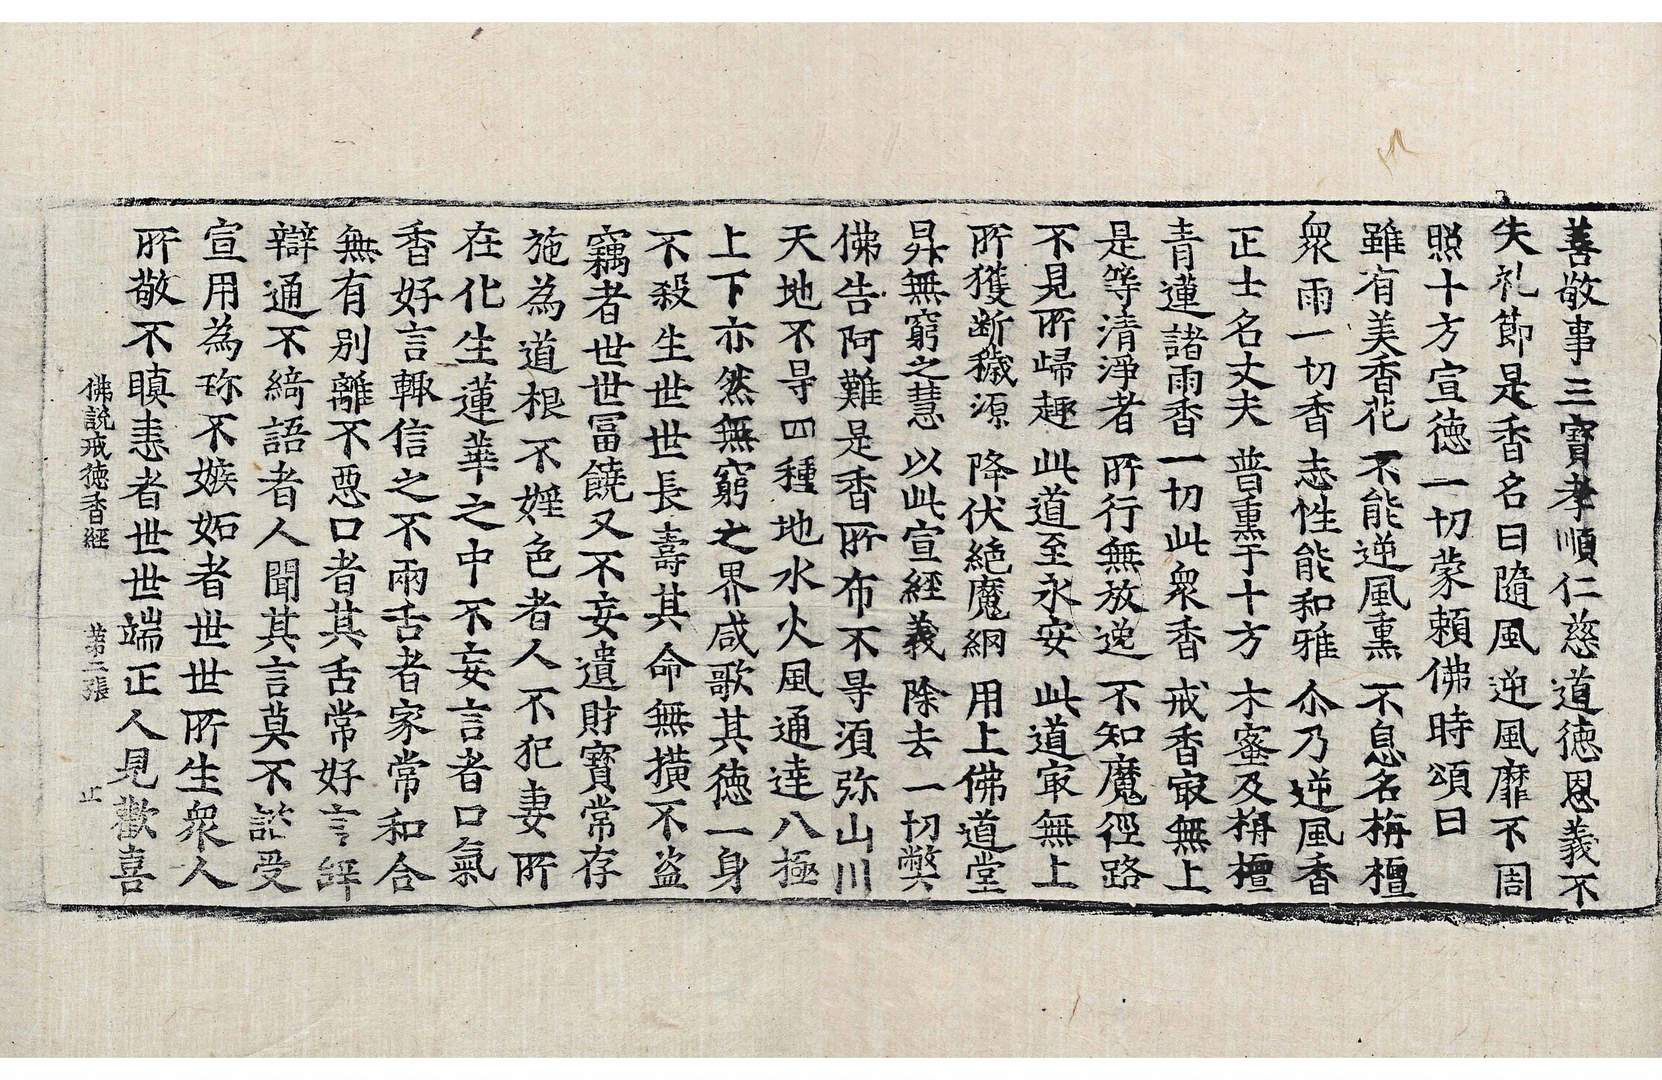 善敬事三寶孝順仁慈道德恩義不
失礼節是香名曰隨風逆風靡不周
照十方宣德一切蒙賴佛時頌曰
雖有美香花 不能逆風熏 不息名栴檀
衆雨一切香 志性能和雅 尒乃逆風香
正士名丈夫 普熏于十方 木蜜及栴檀
青蓮諸雨香 一切此衆香 戒香㝡無上
是等清淨者 所行無放逸 不知魔徑路
不見所歸趣 此道至永安 此道㝡無上
所獲断穢源 降伏絶魔網 用上佛道堂
昇無窮之慧 以此宣經義 除去一切弊
佛告阿難是香所布不㝵須弥山川
天地不㝵四種地水火風通達八極
上下亦然無窮之界咸歌其德一身
不殺生世世長壽其命無橫不盜
竊者世世冨饒又不妄遺財寶常存
施為道根不婬色者人不犯妻所
在化生蓮華之中不妄言者口氣
香好言輙信之不兩舌者家常和合
無有別離不惡口者其舌常好言辝
辯通不綺語者人聞其言莫不諮受
宣用為珎不嫉妬者世世所生衆人
所敬不瞋恚者世世端正人見歡喜
佛説戒德香經 苐二張 止